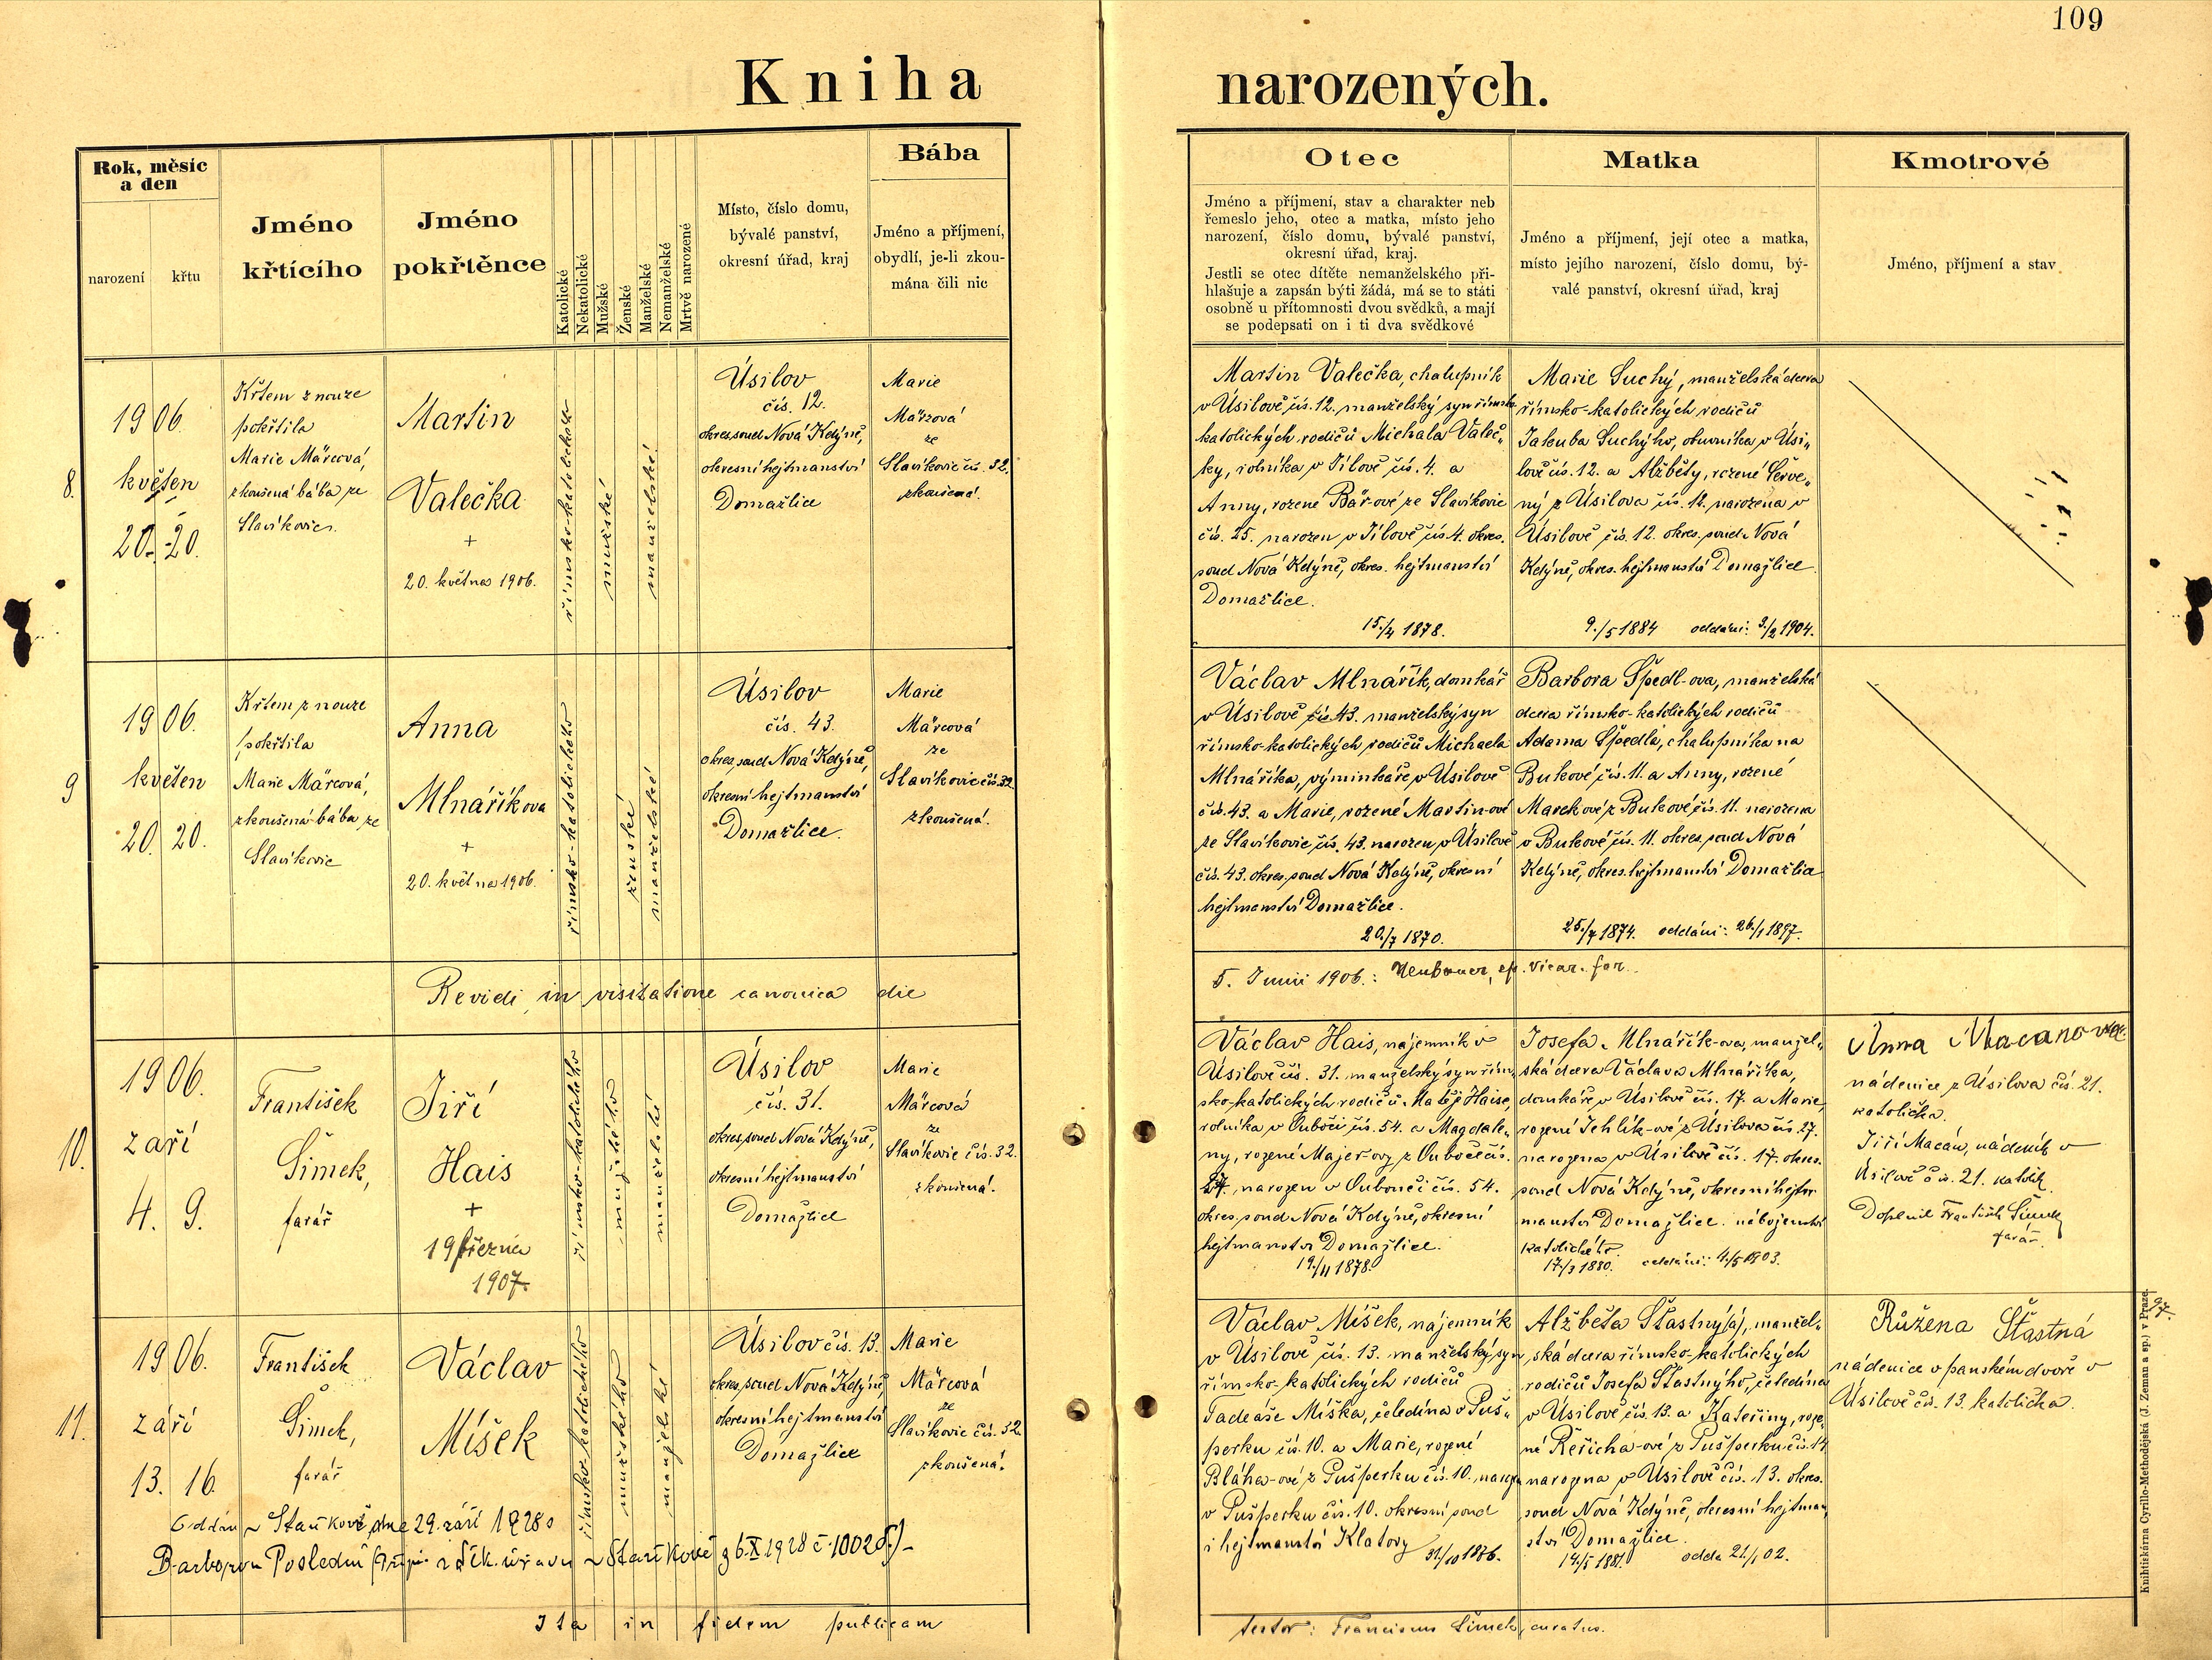 109
Kniha narozených.
Rok, měsíc
a den
narození
křtu
Jméno
křtícího
Jméno
pokřtěnce
Katolické
Nekatolické
Mužské
Ženské
Manželské
Nemanželské
Mrtvě narozené
Místo, číslo domu,
bývalé panství,
okresní úřad, kraj
Bába
Jméno a příjmení,
obydlí, je-li zkou-
mána čili nic
Otec
Jméno a příjmení, stav a charakter neb
řemeslo jeho, otec a matka, místo jeho
narození, číslo domu, bývalé panství,
okresní úřad, kraj.
Jestli se otec dítěte nemanželského při-
hlašuje a zapsán býti žádá, má se to státi
osobně u přítomnosti dvou svědků, a mají
se podepsati on i ti dva svědkové
Matka
Jméno a příjmení, její otec a matka,
místo jejího narození, číslo domu, bý-
valé panství, okresní úřad, kraj
Kmotrové
Jméno, příjmení a stav
8.
1906
květen
20. 20.
Křtem z nouze
pokřtila
Marie Märcová,
zkoušená bába ze
Slavíkovic.
Martin
Valečka
+
20. května 1906.
římsko-katolického
mužské
manželské
Úsilov
čís. 12.
okres. soud Nová Kdýně,
okresní hejtmanství
Domažlice
Marie
Märzová
ze
Slavíkovic čís. 32.
zkoušená.
Martin Valečka, chalupník
v Úsilově čís. 12. manželský syn římsko-
katolických rodičů Michala Valeč„
ky, rolníka v Jílově čís. 4. a
Anny, rozené Bär-ové ze Slavíkovic
čís. 25. narozen v Jílově čís. 4. okres.
soud Nová Kdýně, okres. hejtmanství
Domažlice.
15./4 1878.
Marie Suchý, manželská dcera
římsko-katolických rodičů
Jakuba Suchýho, obuvníka v Úsi„
lově čís. 12. a Alžběty, rozené Červe„
ný z Úsilova čís. 12. narozena v
Úsilově čís. 12. okres. soud Nová
Kdýně, okres. hejtmanství Domažlice.
9./5 1884 oddáni: 9./2 1904.
9
1906.
květen
20. 20.
Křtem z nouze
pokřtila
Marie Märcová,
zkoušená bába ze
Slavíkovic
Anna
Mlnáříkova
+
20. května 1906.
římsko-katolického
ženské
manželské
Úsilov
čís. 43.
okres. soud Nová Kdýně,
okresní hejtmanství
Domažlice.
Marie
Märcová
ze
Slavíkovic čís. 32.
zkoušená.
Václav Mlnářík, domkář
v Úsilově čís 43. manželský syn
římsko-katolických rodičů Michaela
Mlnáříka, výminkáře v Úsilově
čís. 43. a Marie, rozené Martin-ové
ze Slavíkovic čís. 43. narozen v Úsilově
čís. 43. okres. soud Nová Kdýně, okresní
hejtmanství Domažlice.
20./7 1870.
Barbora Špedl-ova, manželská
dcera římsko-katolických rodičů
Adama Špedla, chalupníka na
Bukové čís. 11. a Anny, rozené
Marekové z Bukové čís. 11. narozena
v Bukové čís. 11. okres. soud Nová
Kdýně, okres. hejtmanství Domažlice
25./7 1874. oddáni: 26./1 1897.
Revidi in visitatione canonica die
5. Junii 1906.: Neubauer, ep. vicar. for.
10.
1906.
září
4. 9.
František
Šimek,
farář
Jiří
Hais
+
19 března
1907
římsko-katolického
mužského
manželské
Úsilov
čís. 31.
okres. soud Nová Kdýně,
okresní hejtmanství
Domažlice
Marie
Märcová
ze
Slavíkovic čís. 32.
zkoušená.
Václav Hais, nájemník v
Úsilově čís. 31. manželský syn řím„
sko-katolických rodičů Matěje Haise,
rolníka v Ouboči čís. 54. a Magdale„
ny, rozené Majer-ovy z Oubočče čís.
27. narozen v Oubouči čís. 54.
okres. soud Nová Kdýně, okresní
hejtmanství Domažlice.
19./11 1878.
Josefa Mlnářík-ova, manžel„
ská dcera Václava Mlnáříka,
domkáře v Úsilově čís. 17. a Marie,
rozené Jehlík-ové z Úsilova čís. 27.
narozena v Úsilově čís. 17. okres.
soud Nová Kdýně, okresní hejt„
manství Domažlice. náboženství
katolického.
17./3 1880. oddáni: 4./5 1903.
Anna Macanova
nádenice z Úsilova čís. 21.
katolička.
Jiří Macán, nádeník v
Úsilově čís. 21. katolík.
Doplnil František Šimek
farář.
11.
1906.
září
13. 16.
František
Šimek,
farář
Václav
Míšek
římsko-katolického
mužského
manželské
Úsilov čís. 13.
okres. soud Nová Kdýně
okresní hejtmanství
Domažlice
Marie
Märcová
ze
Slavíkovic čís. 32.
zkoušená.
Václav Míšek, nájemník
v Úsilově čís. 13. manželský syn
římsko-katolických rodičů
Tadeáše Míška, čeledína v Puš„
perku čís. 10. a Marie, rozené
Bláha-ové z Pušperku čís. 10. narozen
v Pušperku čís. 10. okresní soud
i hejtmanství Klatovy 31./10 1876.
Alžběta Šťastný(á), manžel„
ská dcera římsko-katolických
rodičů Josefa Šťastnýho, čeledína
v Úsilově čís. 13. a Kateřiny, roze„
né Řeřicha-ové z Pušperku čís. 14
narozena v Úsilově čís. 13. okres.
soud Nová Kdýně, okresní hejtman„
ství Domažlice.
14./5 1881. oddá 21./1 02.
Růžena Šťastná
nádenice v panském dvoře v
Úsilově čís. 13. katolička.
Oddán v Staňkově dne 29. září 1928 s
Barborou Poslední (Přípis řčk. úřadu v Staňkově z 6.X.1928 č. 1002)
Ita in fidem publicam
testor: Franciscus Šimek, curatus.
Knihtiskárna Cyrillo-Methodějská (J. Zeman a sp.) v Praze.